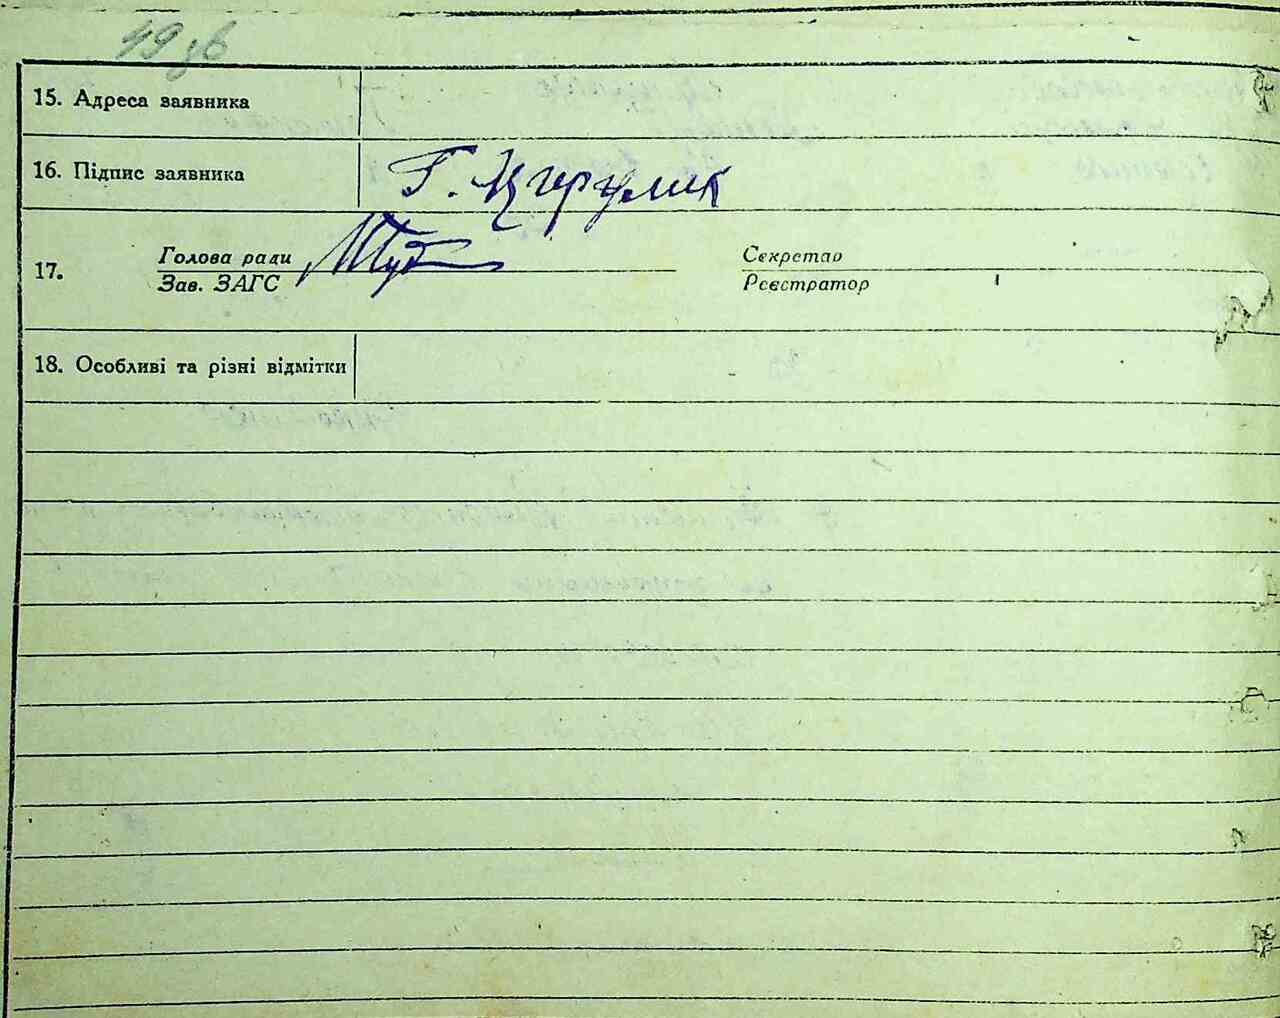 49 зв
15. Адреса заявника
16. Підпис заявника Г. Цигрулик
17. Голова ради Секретар
Зав. ЗАГС Реєстратор
18. Особливі та різні відмітки